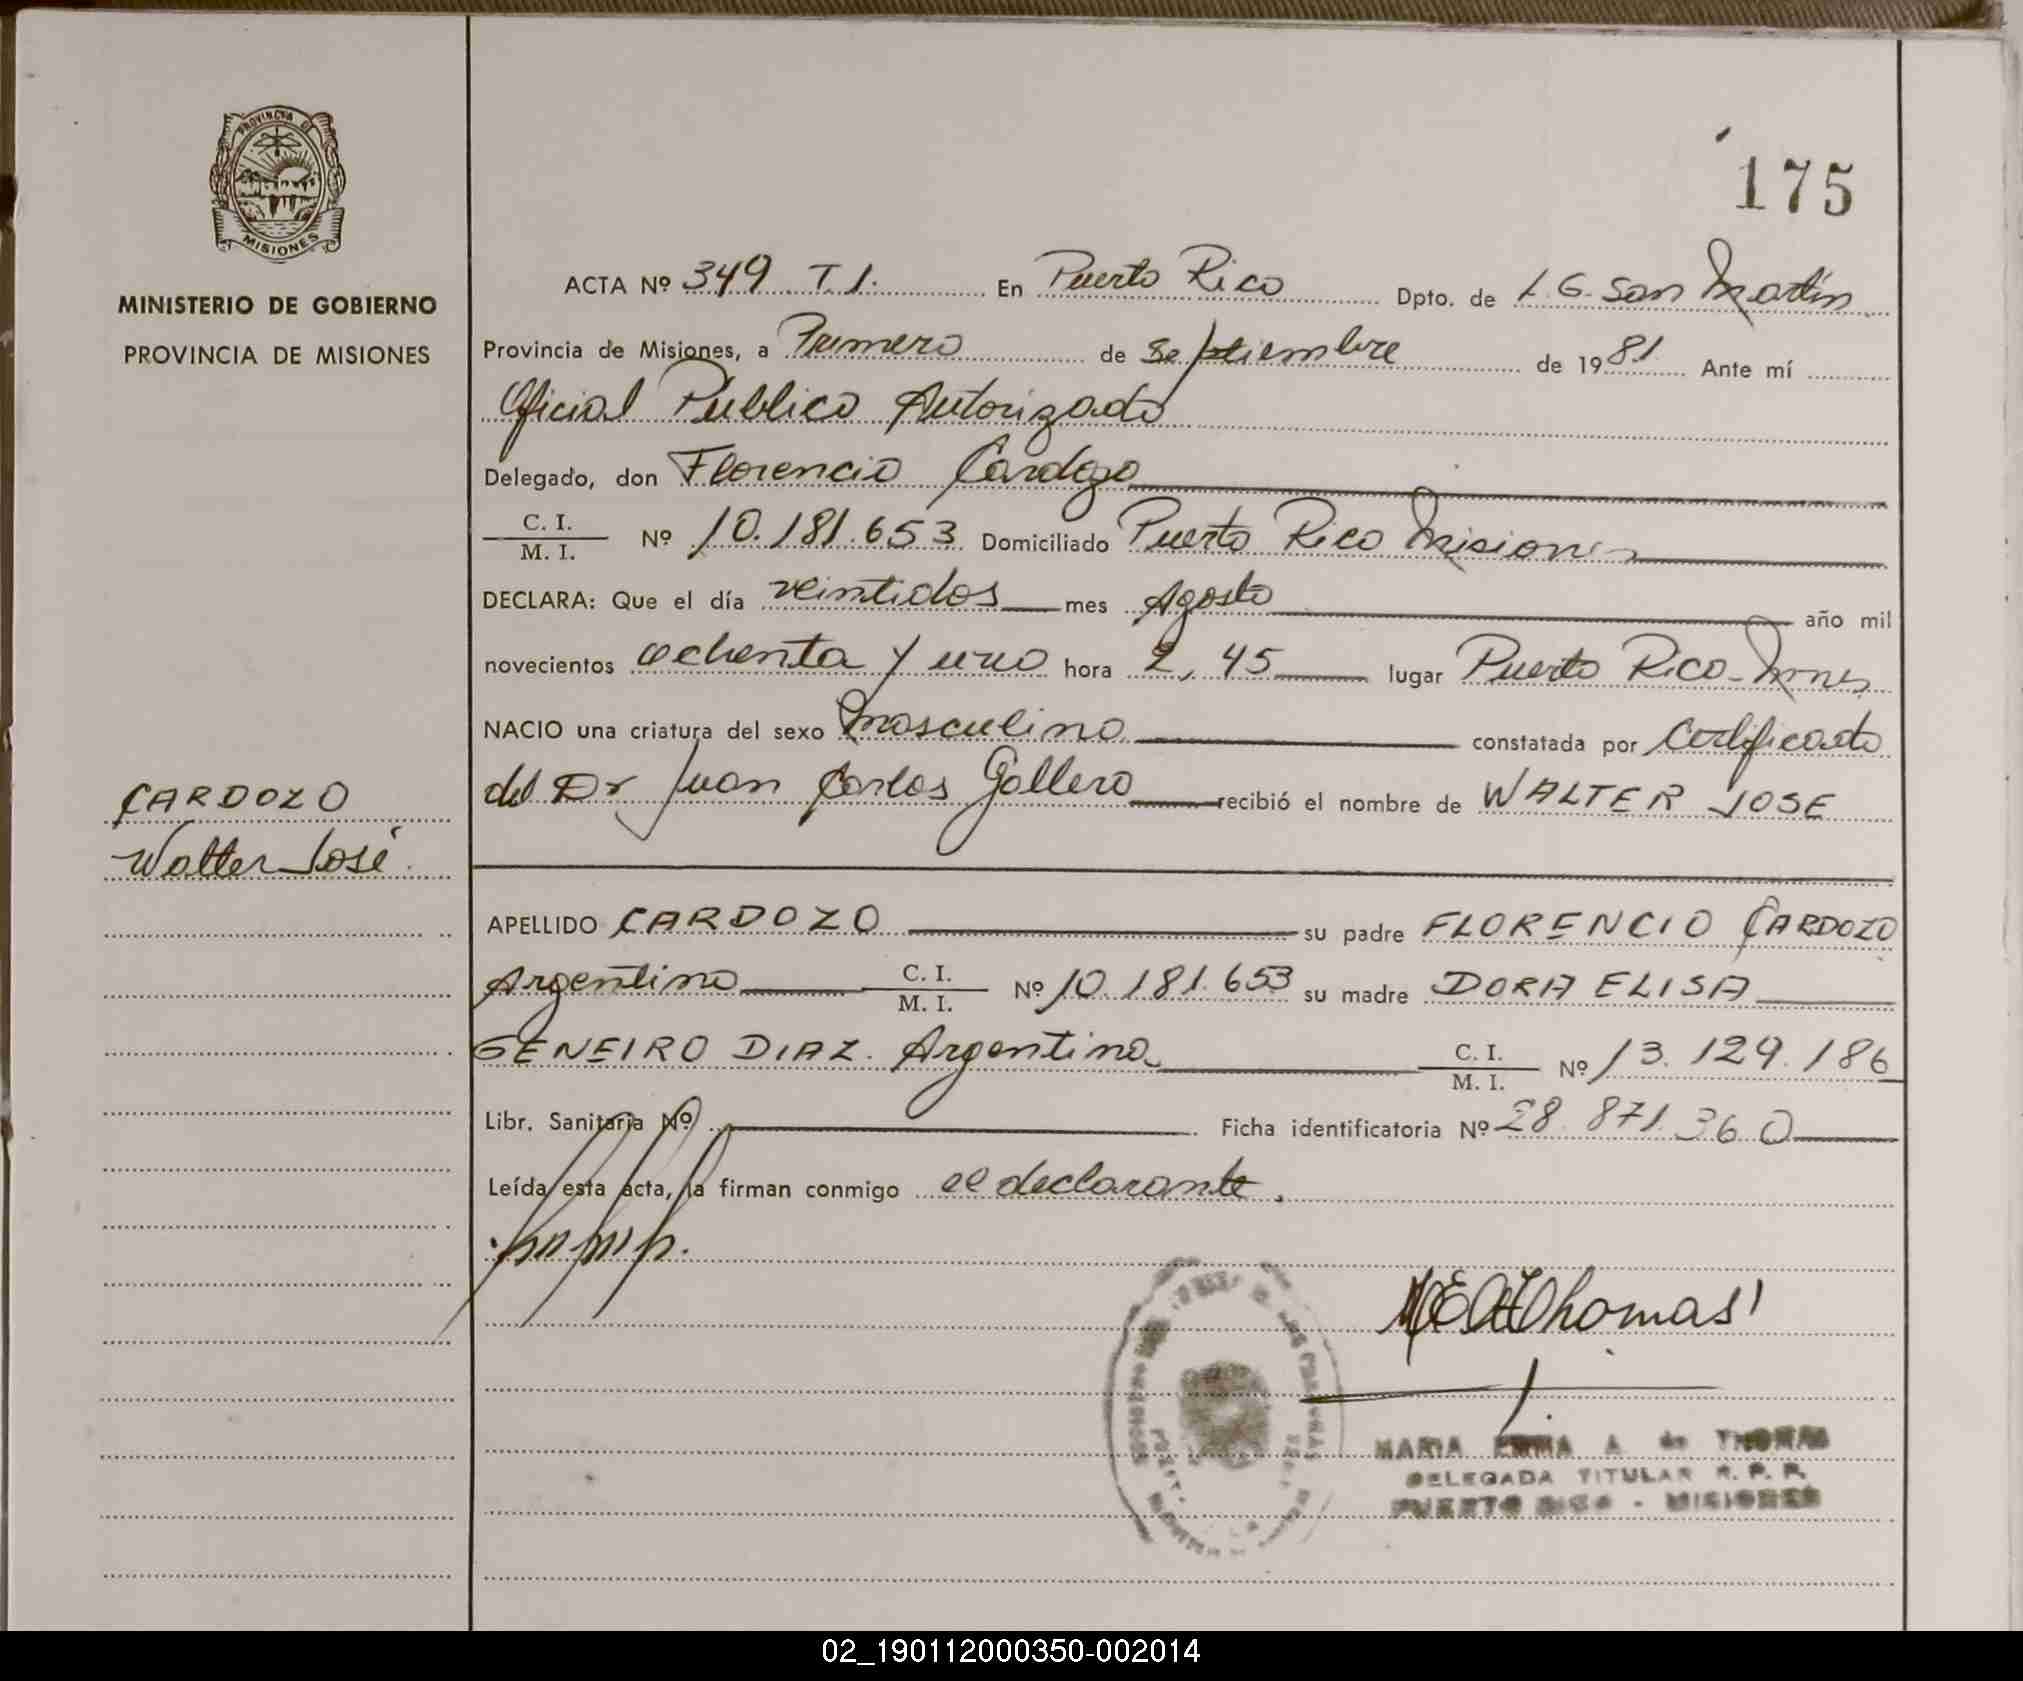 PROVINCIA DE
MISIONES
MINISTERIO DE GOBIERNO
PROVINCIA DE MISIONES
CARDOZO
Walter José
175
ACTA Nº 349 T.1. En Puerto Rico Dpto. de L.G. San Martín
Provincia de Misiones, a Primero de Septiembre de 1981 Ante mí
Oficial Publico Autorizado
Delegado, don Florencio Cardozo
C. I.
M. I. Nº 10.181.653 Domiciliado Puerto Rico Misiones
DECLARA: Que el día veintidos mes Agosto año mil
novecientos ochenta y uno hora 2,45 lugar Puerto Rico-Mnes
NACIO una criatura del sexo masculino constatada por Certificado
del Dr Juan Carlos Gallero recibió el nombre de WALTER JOSE
APELLIDO CARDOZO su padre FLORENCIO CARDOZO
Argentino C. I. M. I. Nº 10.181.653 su madre DORA ELISA
GENEIRO DIAZ. Argentina C. I. M. I. Nº 13.129.186
Libr. Sanitaria Nº Ficha identificatoria Nº 28.871.360
Leída esta acta, la firman conmigo el declarante.
MEAThomas
MARIA EMMA A de THOMAS
DELEGADA TITULAR R. P. P.
PUERTO RICO - MISIONES
02_190112000350-002014